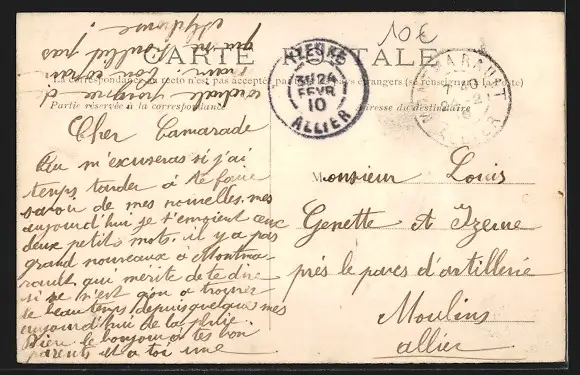 10€
CARTE POSTALE
La correspondance au recto n'est pas acceptée par pays étrangers (se renseigner à la Poste)
Partie réservée à la correspondance
Adresse du destinataire
YZEURE
3U 24
FEVR
10
ALLIER
MARAULT
ALLIER
Cher Camarade
tu m'excuseras si j'ai
temps tarder à te faire
savoir de mes nouvelles, mes
aujourd'hui je t'envoient ceux
deux petits mots, il y a pas
grand nouveaux à Montma-
rault qui mérite de te dire
si se n'est qu'on a
le beau temps depuis quelque mes
aujourd'hui de la pluie.
le bonjour a tes bon
parents et a toi une
cordiale poignée de
main ton copain
qui ne t'oublit pas
Monsieur Louis
Genette à Izeure
près le parc d'artillerie
Moulins
allier